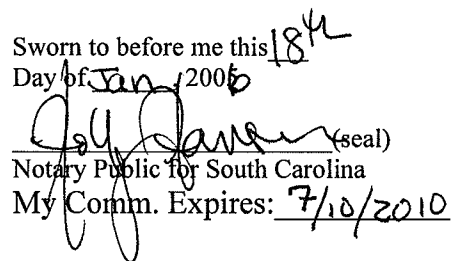 Sworn to before me this 18th
Day of Jan, 2006
(seal)
Notary Public for South Carolina
My Comm. Expires: 7/10/2010